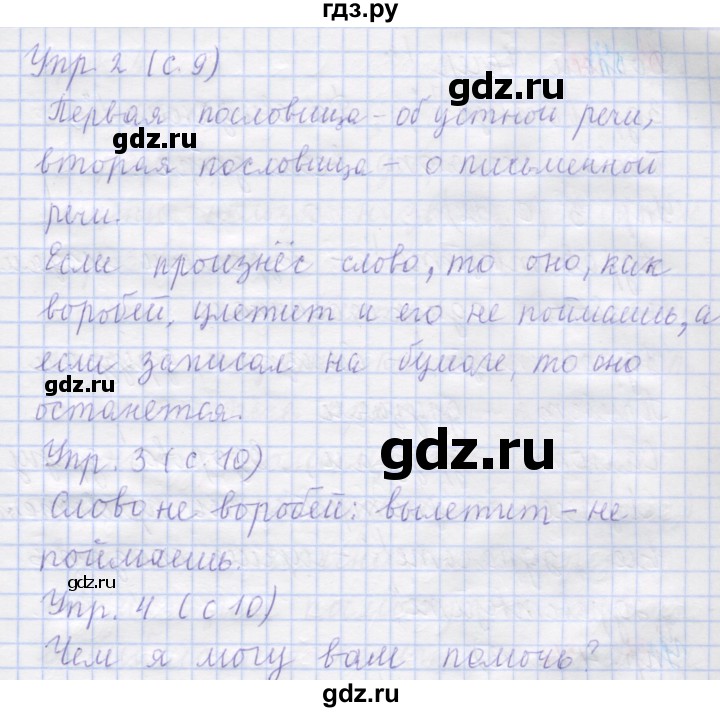 гдз.ру
Упр. 2 (с. 9)
gdz.ru
Первая пословица - об устной речи,
вторая пословица - о письменной
речи.
Если произнёс слово, то оно, как
gdz.ru
воробей, улетит и его не поймаешь, а
если записал на бумаге, то оно
gdz.ru
останется.
gdz.ru
Упр. 3 (с. 10)
Слово не воробей: вылетит - не
поймаешь.
gdz.ru
Упр. 4 (с 10)
Чем я могу вам помочь?
gdz.ru